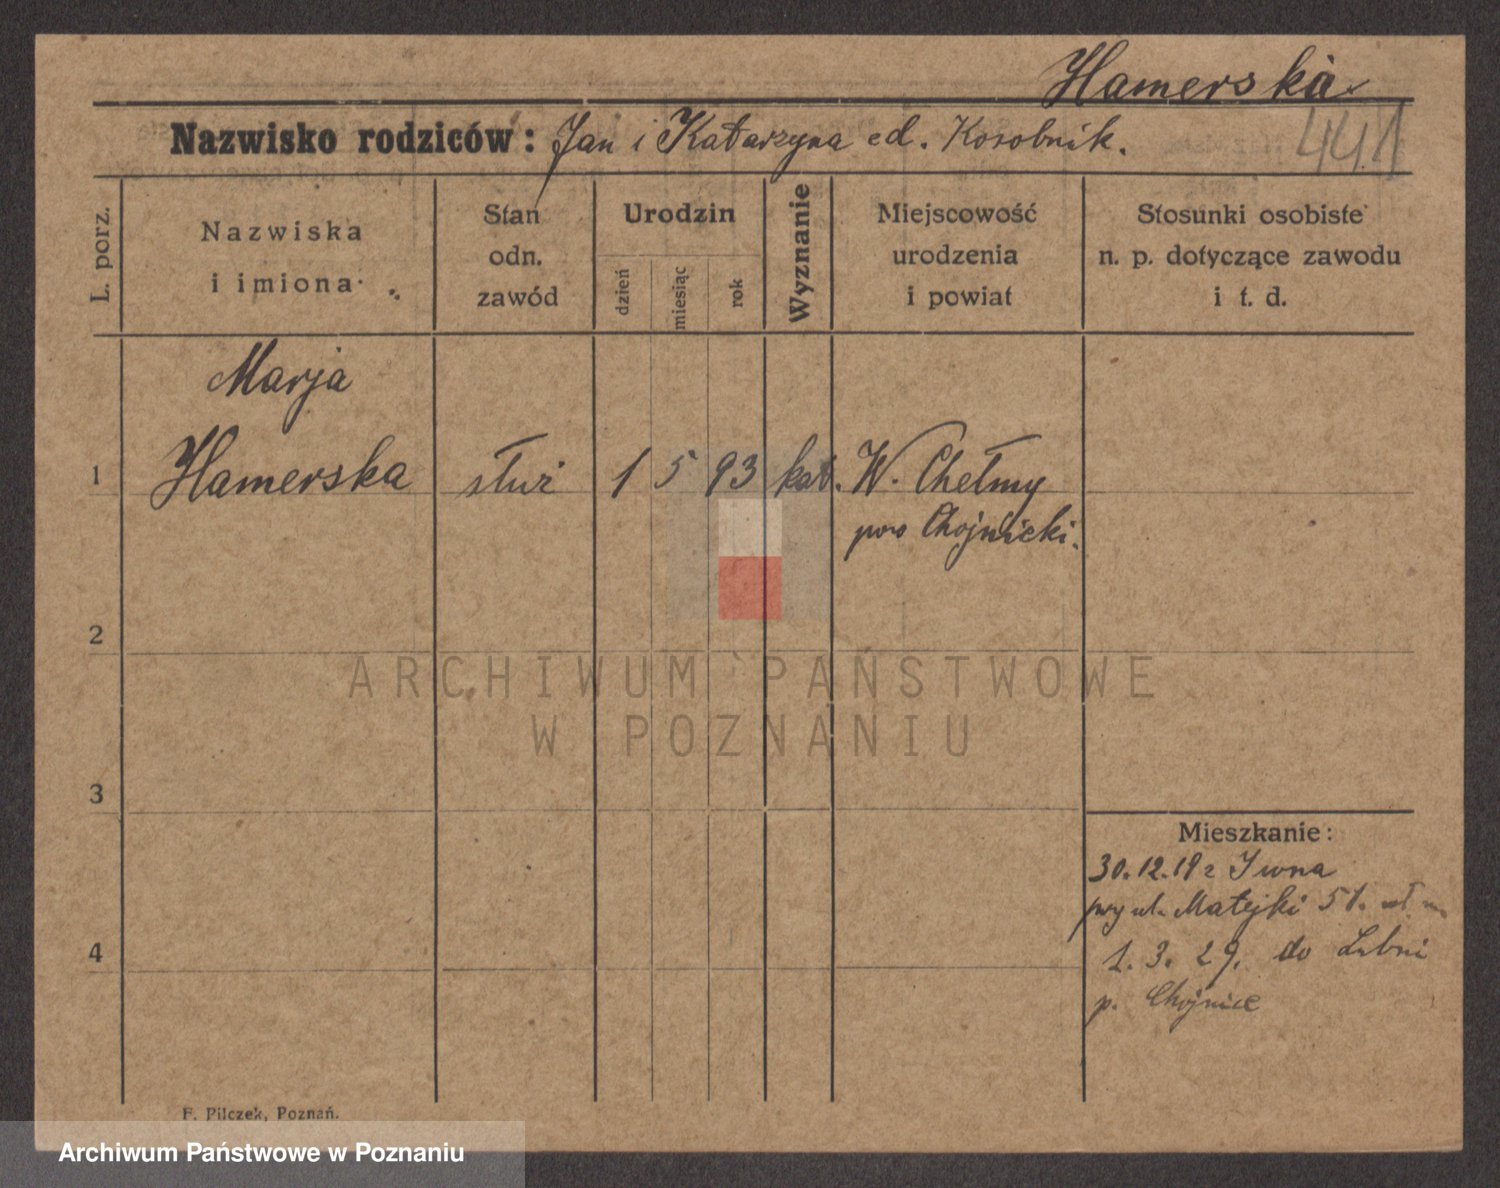 Hamerska
Nazwisko rodziców: Jan i Katarzyna cd. Kosobnik.
441
L. porz.
Nazwiska
i imiona
Stan
odn.
zawód
Urodzin
dzień
miesiąc
rok
Wyznanie
Miejscowość
urodzenia
i powiat
Stosunki osobiste
n. p. dotyczące zawodu
i t. d.
Marja
1 Hamerska służ 1 5 93 kat. W. Chełmy
pow Chojnicki.
2
3
4
Mieszkanie:
30.12.18 z
przy ul. Matejki 51.
1. 3. 29. do
p. Chojnice
F. Pilczek, Poznań.
ARCHIWUM PAŃSTWOWE
W POZNANIU
Archiwum Państwowe w Poznaniu